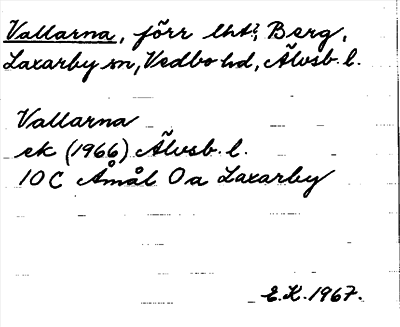 Vallarna, förr lht?, Berg,
Laxarby sn, Vedbo hd, Älvsb. l.
Vallarna
ek (1966) Älvsb. l.
10 C Åmål 0 a Laxarby
E.K. 1967.